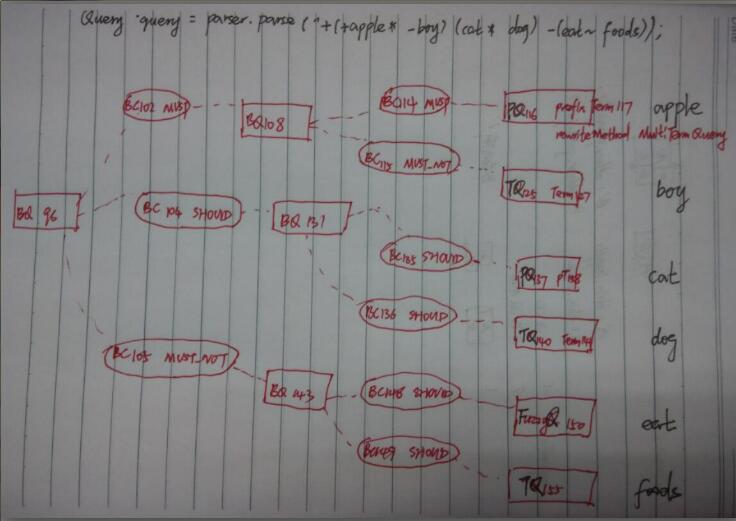 Query query = parser.parse("+(+apple* -boy) (cat* dog) -(eat~ foods)");
BC102 MUST
BQ114 MUST
PQ116 prefix Term117 apple
BQ108
rewriteMethod MultiTermQuery
BC115 MUST_NOT
TQ125 Term127 boy
BQ 96
BC 104 SHOULD
BQ 131
BC135 SHOULD
PQ137 PT138 cat
BC136 SHOULD
TQ140 Term141 dog
BC105 MUST_NOT
BQ 143
BC148 SHOULD
FuzzyQ 150 eat
BC149 SHOULD
TQ155 foods